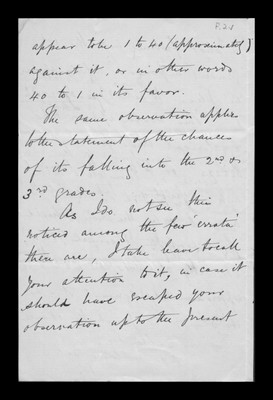 P.21
appear to be 1 to 40 (approximately)
against it, or in other words
40 to 1 in its favor.
The same observation applies
to the statement of the chances
of its falling into the 2nd &
3rd grades.
As I do not see this
noticed among the few 'errata'
there are, I take leave to call
your attention to it, in case it
should have escaped your
observation up to the present